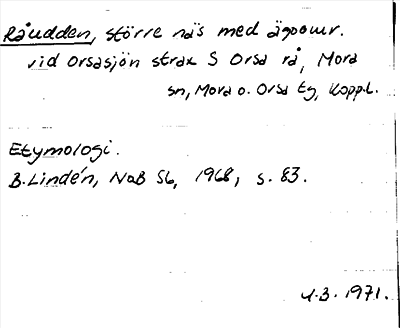 Råudden, större näs med ägoomr.
vid Orsasjön strax S Orsa rå, Mora
sn, Mora o. Orsa tg, Koppl.
Etymologi.
B. Lindén, NoB 56, 1968, s. 83.
4.3.1971.